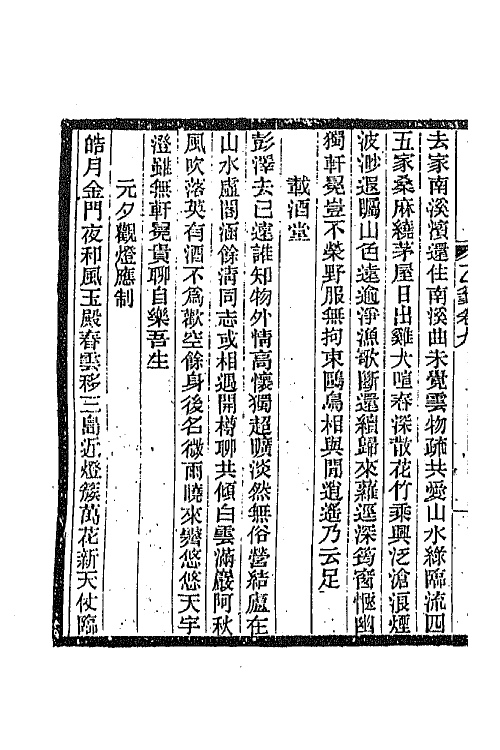 去家南溪濱還住南溪曲未覺雲物疏共愛山水綠臨流四
五家桑麻繞茅屋日出雞犬喧春深散花竹乘興泛滄浪煙
波渺遐矚山色遠逾淨漁歌斷還續歸來蘿逕深筠窗愜幽
獨軒冕豈不榮野服無拘束鷗鳥相與閒逍遙乃云足
載酒堂
彭澤去已遠誰知物外情高懷獨超曠淡然無俗營結廬在
山水虛閣涵餘清同志或相遇開樽聊共傾白雲滿巖阿秋
風吹落英有酒不為歡空餘身後名微雨曉來霽悠悠天宇
澄雖無軒冕貴聊自樂吾生
元夕觀燈應制
皓月金門夜和風玉殿春雲移三島近燈簇萬花新天仗臨